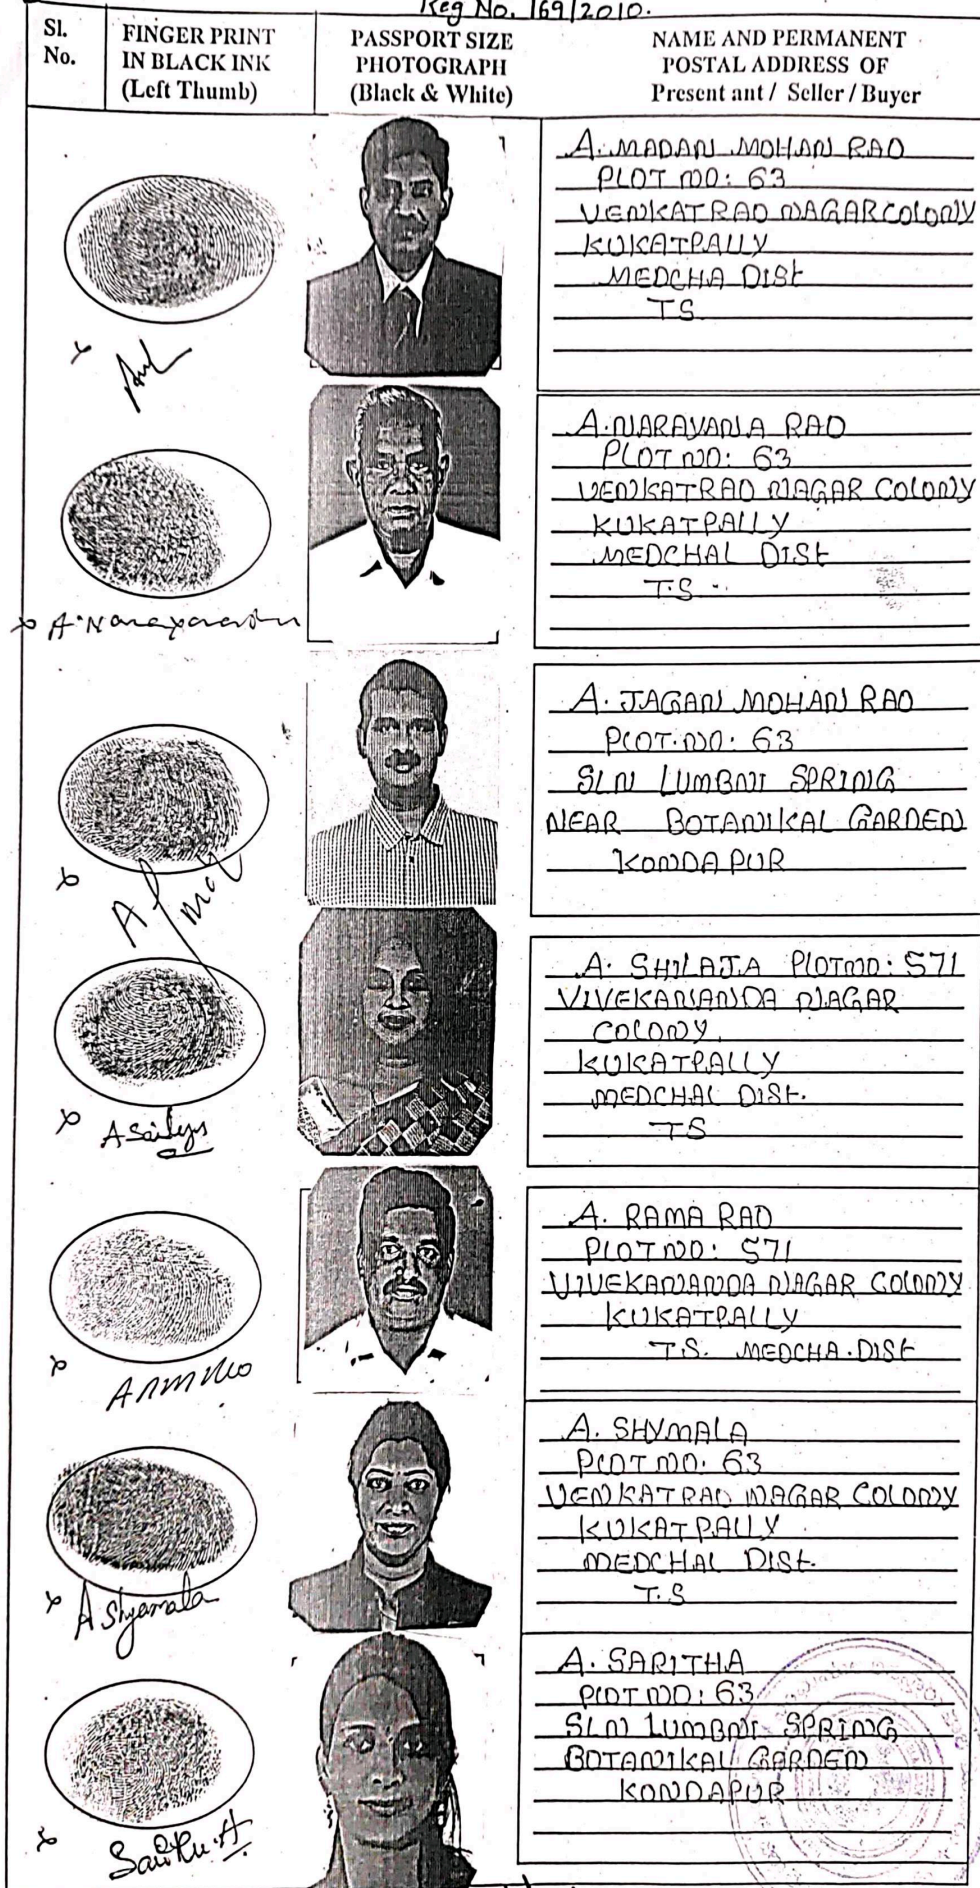 Reg No. 169/2010.
Sl. No.
FINGER PRINT IN BLACK INK (Left Thumb)
PASSPORT SIZE PHOTOGRAPH (Black & White)
NAME AND PERMANENT POSTAL ADDRESS OF Present ant / Seller / Buyer
A. MADAN MOHAN RAO
PLOT NO: 63
VENKATRAO NAGAR COLONY
KUKATPALLY
MEDCHA DISt
TS
A. NARAYANA RAO
PLOT NO: 63
VENKATRAO NAGAR COLONY
KUKATPALLY
MEDCHAL DISt
T.S.
A. Narayanarao
A. JAGAN MOHAN RAO
PLOT.NO: 63
SLN LUMBNI SPRING
NEAR BOTANIKAL GARDEN
KONDAPUR
A. SHILAJA PLOT NO: 571
VIVEKANANDA NAGAR
COLONY,
KUKATPALLY
MEDCHAL DISt.
TS
A. RAMA RAO
PLOT NO: 571
VIVEKANANDA NAGAR COLONY
KUKATPALLY
T.S. MEDCHA.DISt
A. SHYMALA
PLOT NO. 63
VENKATRAO NAGAR COLONY
KUKATPALLY
MEDCHAL DISt.
T.S
A Shyamala
A. SARITHA
PLOT NO: 63
SLN LUMBNI SPRING
BOTANIKAL GARDEN
KONDAPUR